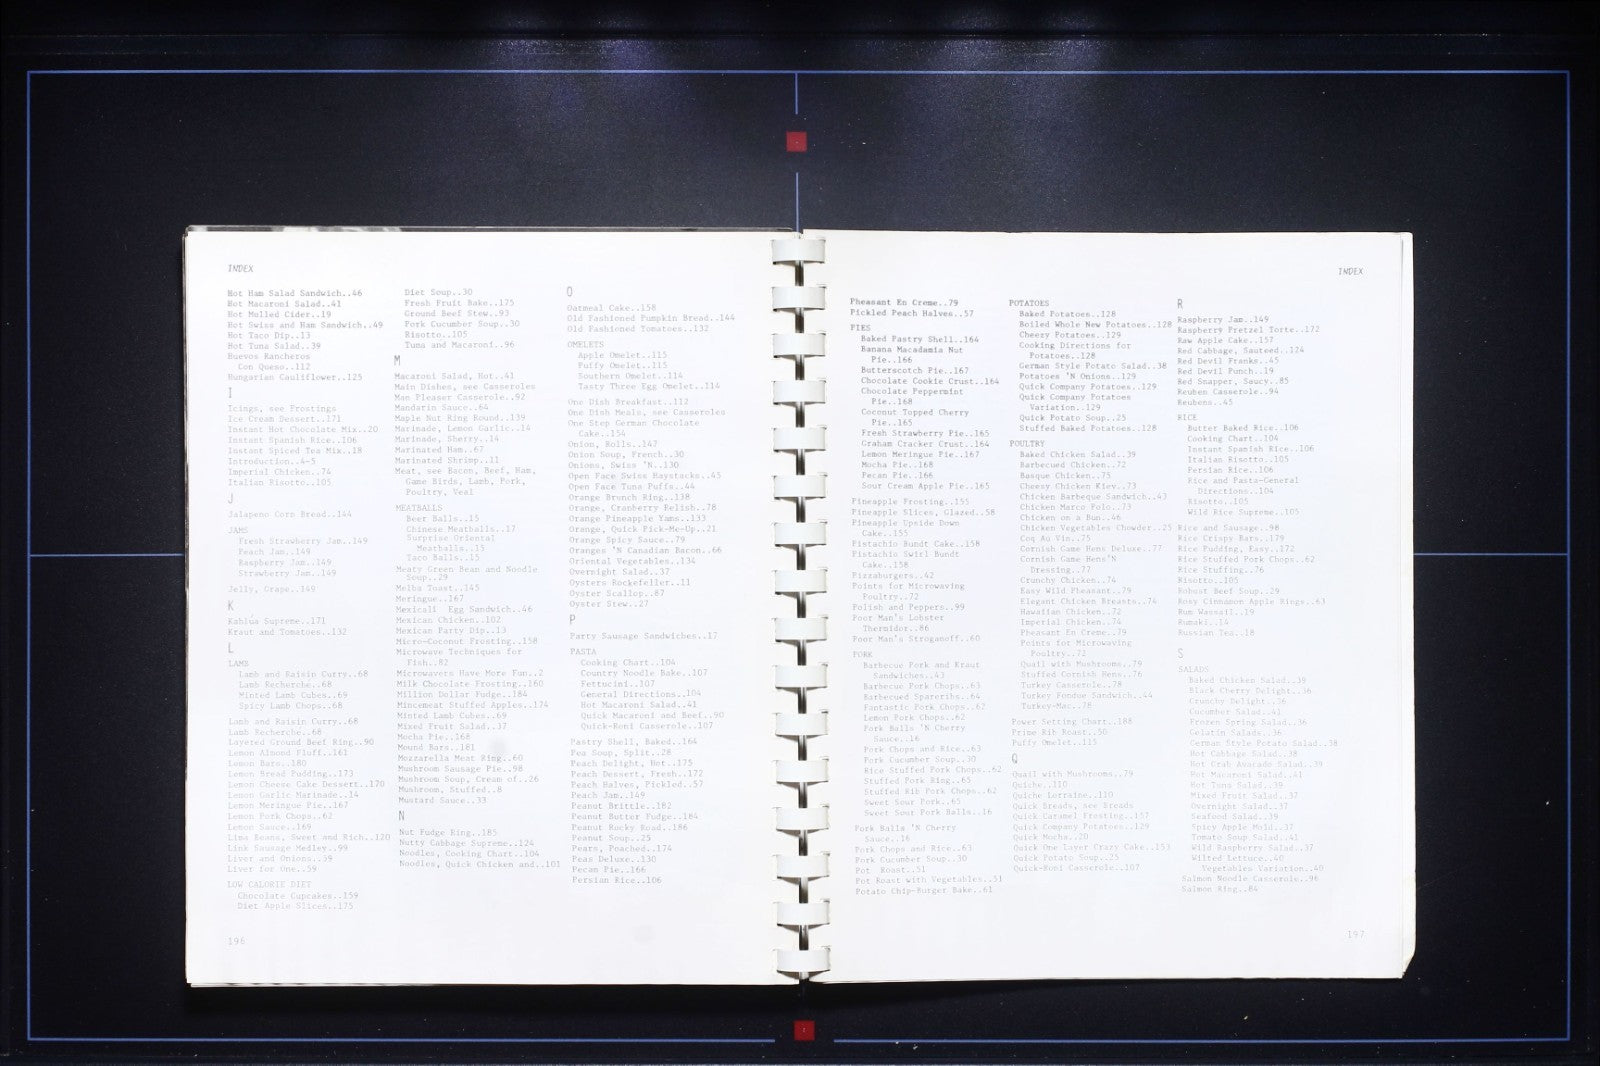 INDEX
Hot Ham Salad Sandwich..46
Hot Macaroni Salad..41
Hot Mulled Cider..19
Hot Swiss and Ham Sandwich..49
Hot Taco Dip..13
Hot Tuna Salad..39
Huevos Rancheros
Con Queso..112
Hungarian Cauliflower..125
I
Icings, see Frostings
Ice Cream Dessert..171
Instant Hot Chocolate Mix..20
Instant Spanish Rice..106
Instant Spiced Tea Mix..18
Introduction..4-5
Imperial Chicken..74
Italian Risotto..105
J
Jalapeno Corn Bread..144
JAMS
Fresh Strawberry Jam..149
Peach Jam..149
Raspberry Jam..149
Strawberry Jam..149
Jelly, Grape..149
K
Kahlua Supreme..171
Kraut and Tomatoes..132
L
LAMB
Lamb and Raisin Curry..68
Lamb Recherche..68
Minted Lamb Cubes..69
Spicy Lamb Chops..68
Lamb and Raisin Curry..68
Lamb Recherche..68
Layered Ground Beef Ring..90
Lemon Almond Fluff..161
Lemon Bars..180
Lemon Bread Pudding..173
Lemon Cheese Cake Dessert..170
Lemon Garlic Marinade..14
Lemon Meringue Pie..167
Lemon Pork Chops..62
Lemon Sauce..169
Lima Beans, Sweet and Rich..120
Link Sausage Medley..99
Liver and Onions..59
Liver for One..59
LOW CALORIE DIET
Chocolate Cupcakes..159
Diet Apple Slices..175
Diet Soup..30
Fresh Fruit Bake..175
Ground Beef Stew..93
Pork Cucumber Soup..30
Risotto..105
Tuna and Macaroni..96
M
Macaroni Salad, Hot..41
Main Dishes, see Casseroles
Man Pleaser Casserole..92
Mandarin Sauce..64
Maple Nut Ring Round..139
Marinade, Lemon Garlic..14
Marinade, Sherry..14
Marinated Ham..67
Marinated Shrimp..11
Meat, see Bacon, Beef, Ham,
Game Birds, Lamb, Pork,
Poultry, Veal
MEATBALLS
Beer Balls..15
Chinese Meatballs..17
Surprise Oriental
Meatballs..15
Taco Balls..15
Meaty Green Bean and Noodle
Soup..29
Melba Toast..145
Meringue..167
Mexicali Egg Sandwich..46
Mexican Chicken..102
Mexican Party Dip..13
Micro-Coconut Frosting..158
Microwave Techniques for
Fish..82
Microwavers Have More Fun..2
Milk Chocolate Frosting..160
Million Dollar Fudge..184
Mincemeat Stuffed Apples..174
Minted Lamb Cubes..69
Mixed Fruit Salad..37
Mocha Pie..168
Mound Bars..181
Mozzarella Meat Ring..60
Mushroom Sausage Pie..98
Mushroom Soup, Cream of..26
Mushroom, Stuffed..8
Mustard Sauce..33
N
Nut Fudge Ring..185
Nutty Cabbage Supreme..124
Noodles, Cooking Chart..104
Noodles, Quick Chicken and..101
O
Oatmeal Cake..158
Old Fashioned Pumpkin Bread..144
Old Fashioned Tomatoes..132
OMELETS
Apple Omelet..115
Puffy Omelet..115
Southern Omelet..114
Tasty Three Egg Omelet..114
One Dish Breakfast..112
One Dish Meals, see Casseroles
One Step German Chocolate
Cake..154
Onion, Rolls..147
Onion Soup, French..30
Onions, Swiss 'N..130
Open Face Swiss Haystacks..45
Open Face Tuna Puffs..44
Orange Brunch Ring..138
Orange, Cranberry Relish..78
Orange Pineapple Yams..133
Orange, Quick Pick-Me-Up..21
Orange Spicy Sauce..79
Oranges 'N Canadian Bacon..66
Oriental Vegetables..134
Overnight Salad..37
Oysters Rockefeller..11
Oyster Scallop..87
Oyster Stew..27
P
Party Sausage Sandwiches..17
PASTA
Cooking Chart..104
Country Noodle Bake..107
Fettucini..107
General Directions..104
Hot Macaroni Salad..41
Quick Macaroni and Beef..90
Quick-Roni Casserole..107
Pastry Shell, Baked..164
Pea Soup, Split..28
Peach Delight, Hot..175
Peach Dessert, Fresh..172
Peach Halves, Pickled..57
Peach Jam..149
Peanut Brittle..182
Peanut Butter Fudge..184
Peanut Rocky Road..186
Peanut Soup..25
Pears, Poached..174
Peas Deluxe..130
Pecan Pie..166
Persian Rice..106
196
INDEX
Pheasant En Creme..79
Pickled Peach Halves..57
PIES
Baked Pastry Shell..164
Banana Macadamia Nut
Pie..166
Butterscotch Pie..167
Chocolate Cookie Crust..164
Chocolate Peppermint
Pie..168
Coconut Topped Cherry
Pie..165
Fresh Strawberry Pie..165
Graham Cracker Crust..164
Lemon Meringue Pie..167
Mocha Pie..168
Pecan Pie..166
Sour Cream Apple Pie..165
Pineapple Frosting..155
Pineapple Slices, Glazed..58
Pineapple Upside Down
Cake..155
Pistachio Bundt Cake..158
Pistachio Swirl Bundt
Cake..158
Pizzaburgers..42
Points for Microwaving
Poultry..72
Polish and Peppers..99
Poor Man's Lobster
Thermidor..86
Poor Man's Stroganoff..60
PORK
Barbecue Pork and Kraut
Sandwiches..43
Barbecue Pork Chops..63
Barbecued Spareribs..64
Fantastic Pork Chops..62
Lemon Pork Chops..62
Pork Balls 'N Cherry
Sauce..16
Pork Chops and Rice..63
Pork Cucumber Soup..30
Rice Stuffed Pork Chops..62
Stuffed Pork Ring..65
Stuffed Rib Pork Chops..62
Sweet Sour Pork..65
Sweet Sour Pork Balls..16
Pork Balls 'N Cherry
Sauce..16
Pork Chops and Rice..63
Pork Cucumber Soup..30
Pot Roast..51
Pot Roast with Vegetables..51
Potato Chip-Burger Bake..61
POTATOES
Baked Potatoes..128
Boiled Whole New Potatoes..128
Cheezy Potatoes..129
Cooking Directions for
Potatoes..128
German Style Potato Salad..38
Potatoes 'N Onions..129
Quick Company Potatoes..129
Quick Company Potatoes
Variation..129
Quick Potato Soup..25
Stuffed Baked Potatoes..128
POULTRY
Baked Chicken Salad..39
Barbecued Chicken..72
Basque Chicken..75
Cheesy Chicken Kiev..73
Chicken Barbeque Sandwich..43
Chicken Marco Polo..73
Chicken on a Bun..46
Chicken Vegetables Chowder..25
Coq Au Vin..75
Cornish Game Hens Deluxe..77
Cornish Game Hens'N
Dressing..77
Crunchy Chicken..74
Easy Wild Pheasant..79
Elegant Chicken Breasts..74
Hawaiian Chicken..72
Imperial Chicken..74
Pheasant En Creme..79
Points for Microwaving
Poultry..72
Quail with Mushrooms..79
Stuffed Cornish Hens..76
Turkey Casserole..78
Turkey Fondue Sandwich..44
Turkey-Mac..78
Power Setting Chart..188
Prime Rib Roast..50
Puffy Omelet..115
Q
Quail with Mushrooms..79
Quiche..110
Quiche Lorraine..110
Quick Breads, see Breads
Quick Caramel Frosting..157
Quick Company Potatoes..129
Quick Mocha..20
Quick One Layer Crazy Cake..153
Quick Potato Soup..25
Quick-Roni Casserole..107
R
Raspberry Jam..149
Raspberry Pretzel Torte..172
Raw Apple Cake..157
Red Cabbage, Sauteed..124
Red Devil Franks..45
Red Devil Punch..19
Red Snapper, Saucy..85
Reuben Casserole..94
Reubens..45
RICE
Butter Baked Rice..106
Cooking Chart..104
Instant Spanish Rice..106
Italian Risotto..105
Persian Rice..106
Rice and Pasta-General
Directions..104
Risotto..105
Wild Rice Supreme..105
Rice and Sausage..98
Rice Crispy Bars..179
Rice Pudding, Easy..172
Rice Stuffed Pork Chops..62
Rice Stuffing..76
Risotto..105
Robust Beef Soup..29
Rosy Cinnamon Apple Rings..63
Rum Wassail..19
Rumaki..14
Russian Tea..18
S
SALADS
Baked Chicken Salad..39
Black Cherry Delight..36
Crunchy Delight..36
Cucumber Salad..41
Frozen Spring Salad..36
Gelatin Salads..36
German Style Potato Salad..38
Hot Cabbage Salad..38
Hot Crab Avacado Salad..39
Hot Macaroni Salad..41
Hot Tuna Salad..39
Mixed Fruit Salad..37
Overnight Salad..37
Seafood Salad..39
Spicy Apple Mold..37
Tomato Soup Salad..41
Wild Raspberry Salad..37
Wilted Lettuce..40
Vegetables Variation..40
Salmon Noodle Casserole..96
Salmon Ring..84
197